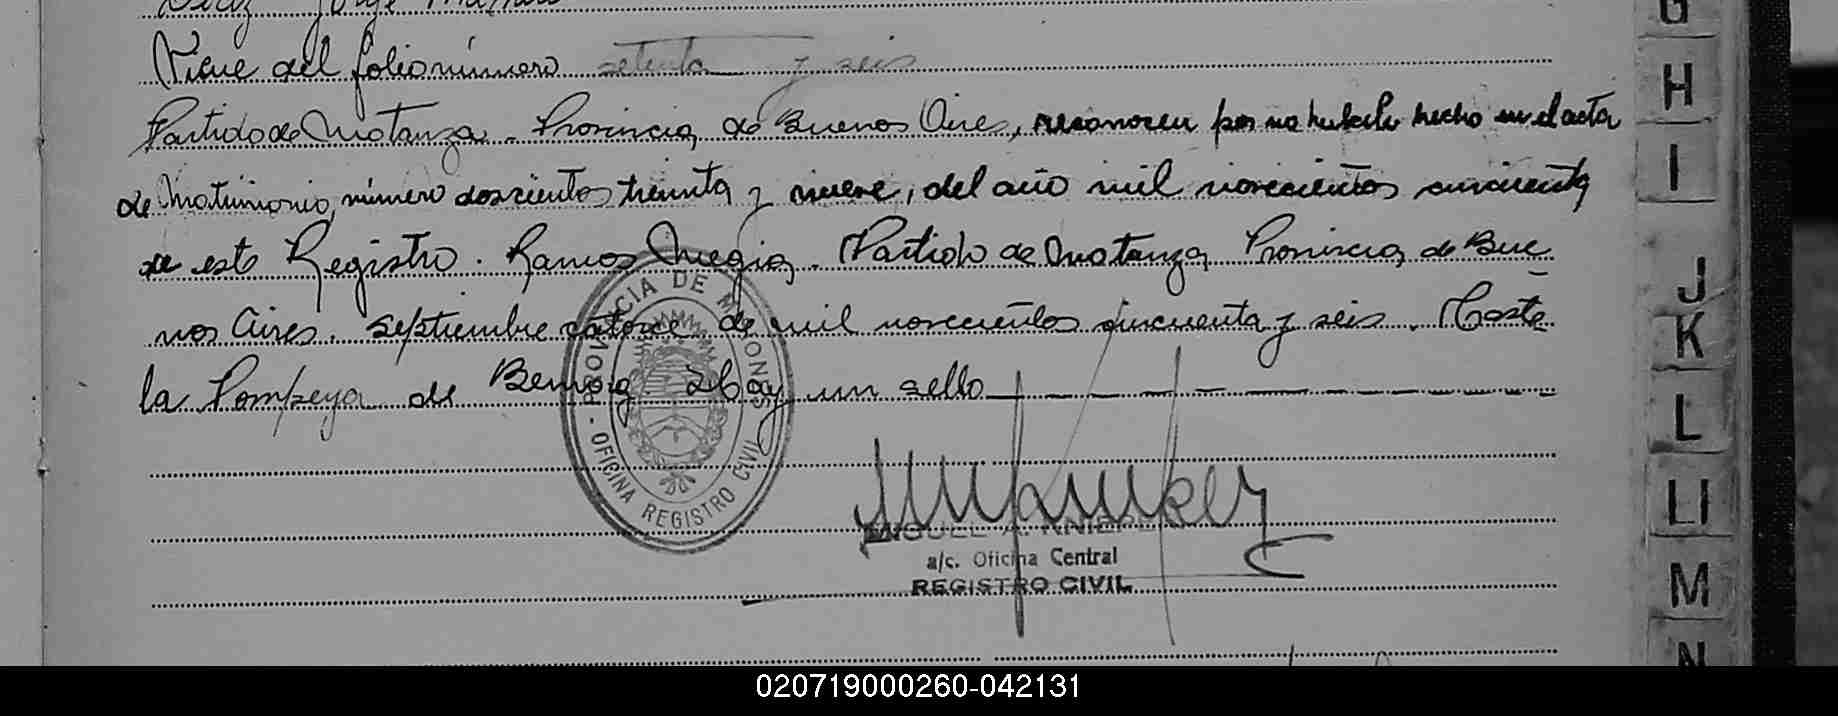 Diaz Jorge
Viene del folio número setenta y seis
Partido de Matanza. Provincia de Buenos Aires, reconocen por no haberlo hecho en el acta
de Matrimonio, número doscientos treinta y nueve, del año mil novecientos cincuenta
de este Registro. Ramos Megia. Partido de Matanza Provincia de Bue
nos Aires. septiembre catorce de mil novecientos cincuenta y seis.
la Pompeya de Hay un sello
PROVINCIA DE MISIONES
- OFICINA REGISTRO CIVIL -
MIGUEL A.
a/c. Oficina Central
REGISTRO CIVIL
G
H
I
J
K
L
Ll
M
N
020719000260-042131